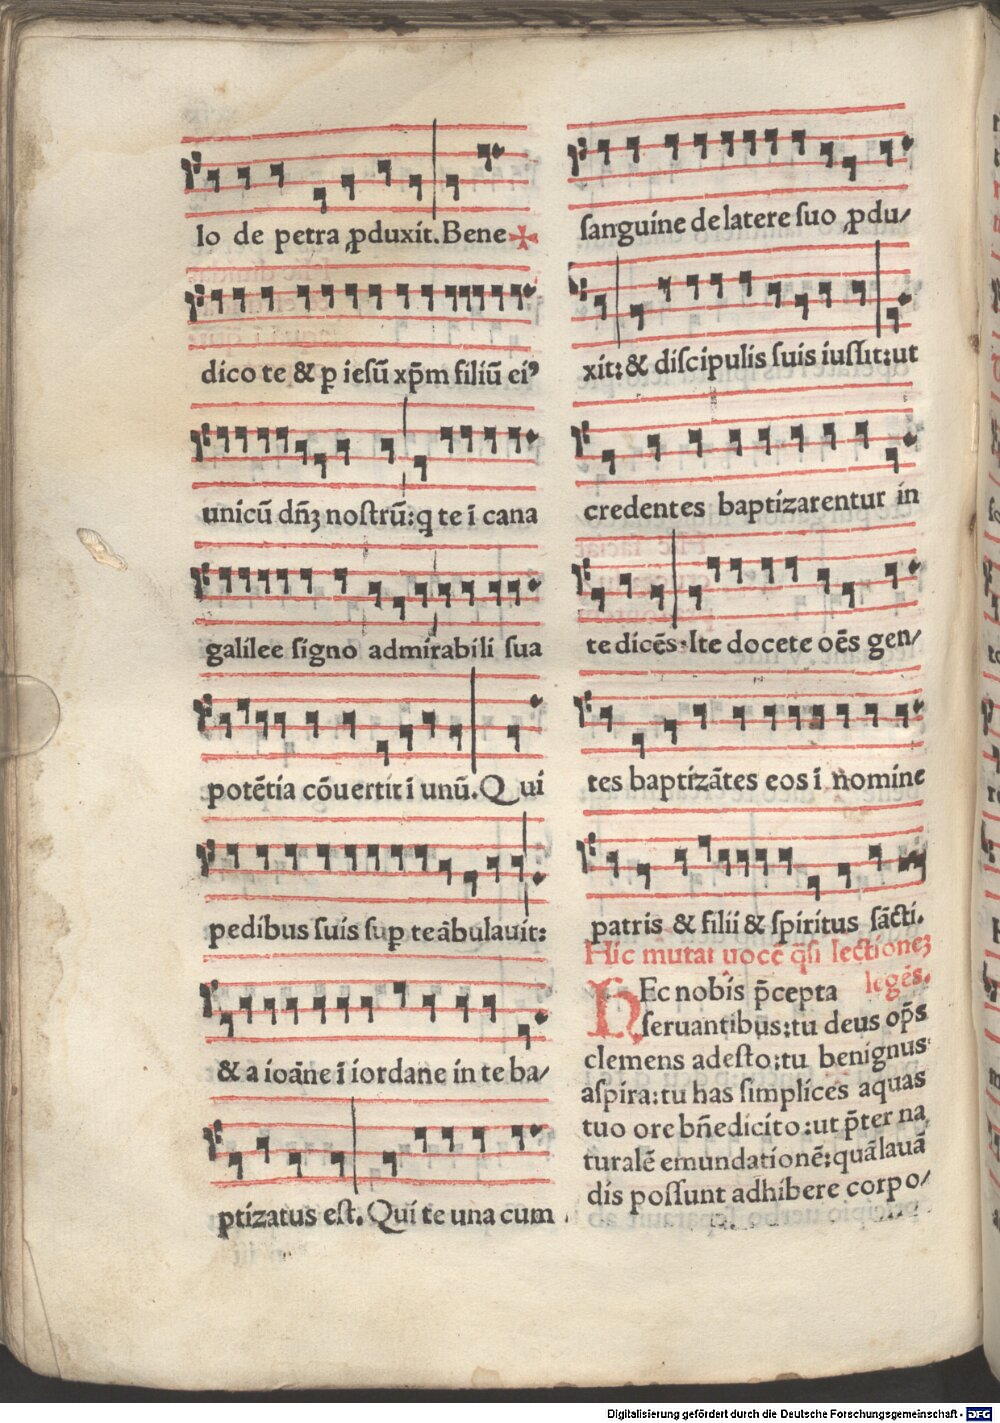 lo de petra ꝓduxit. Bene✠
dico te & ꝑ iesū xp̄m filiū eiꝰ
unicū dn̄ꝫ nostrū: q te ī cana
galilee signo admirabili sua
potētia cōuertit ī unū. Qui
pedibus suis suꝑ te ābulauit:
& a ioāne ī iordane in te ba/
ptizatus est. Qui te una cum
sanguine de latere suo ꝓdu/
xit: & discipulis suis iussit: ut
credentes baptizarentur in
te dicēs. Ite docete oēs gen/
tes baptizātes eos ī nomine
patris & filii & spiritus sācti.
Hic mutat uocē q̄si lectioneꝫ
legēs.
HEc nobis p̄cepta
seruantibus: tu deus op̄s
clemens adesto: tu benignus
aspira: tu has simplices aquas
tuo ore bn̄edicito: ut p̄ter na
turalē emundationē: quā lauā
dis possunt adhibere corpo/
Digitalisierung gefördert durch die Deutsche Forschungsgemeinschaft - DFG